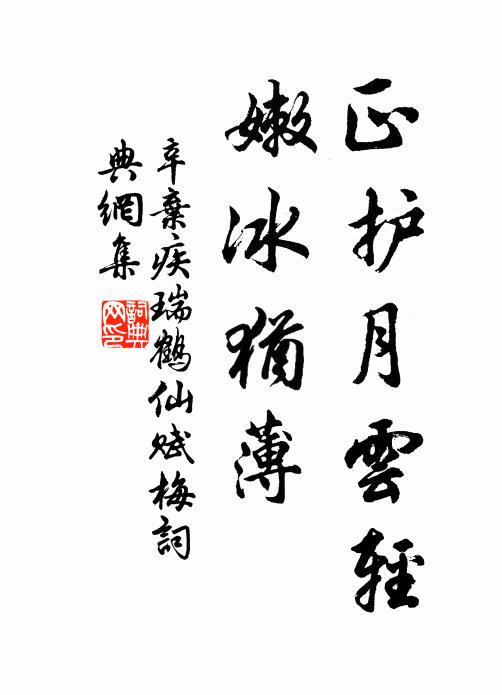 正护月雲輕
嫩冰猶薄
辛棄疾瑞鶴仙赋梅詞
典網集
詞典
网印